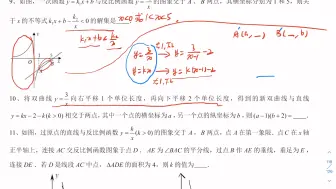 9. 一次函数 y=k₁x+b 与反比例函数 y=k₂/x 的图象交于 A、B 两点，其横坐标分别为 1 和 5，则关
于 x 的不等式 k₁x+b-k₂/x<0 的解集是 x<0 或 1<x<5
k₁x+b<k₂/x
y=3/x → y=3/(x-1)-2
y=kx → y=k(x-1)-2
10. 将双曲线 y=3/x 向右平移 1 个单位长度，再向下平移 2 个单位长度，得到的新双曲线与直线
y=kx-2-k(k>0) 相交于两点，其中一个点的横坐标为 a，另一个点的纵坐标为 b，则(a-1)(b+2)=
11. 如图，过原点的直线与反比例函数 y=k/x (k>0)的图象交于 A、B 两点，点 A 在第一象限，点 C 在 x 轴
正半轴上，连接 AC 交反比例函数图象于点 D．AE 为∠BAC 的平分线，过点 B 作 AE 的垂线，垂足为 E，
连接 DE．若 D 是线段 AC 中点，△ADE 的面积为 4，则 k 的值为